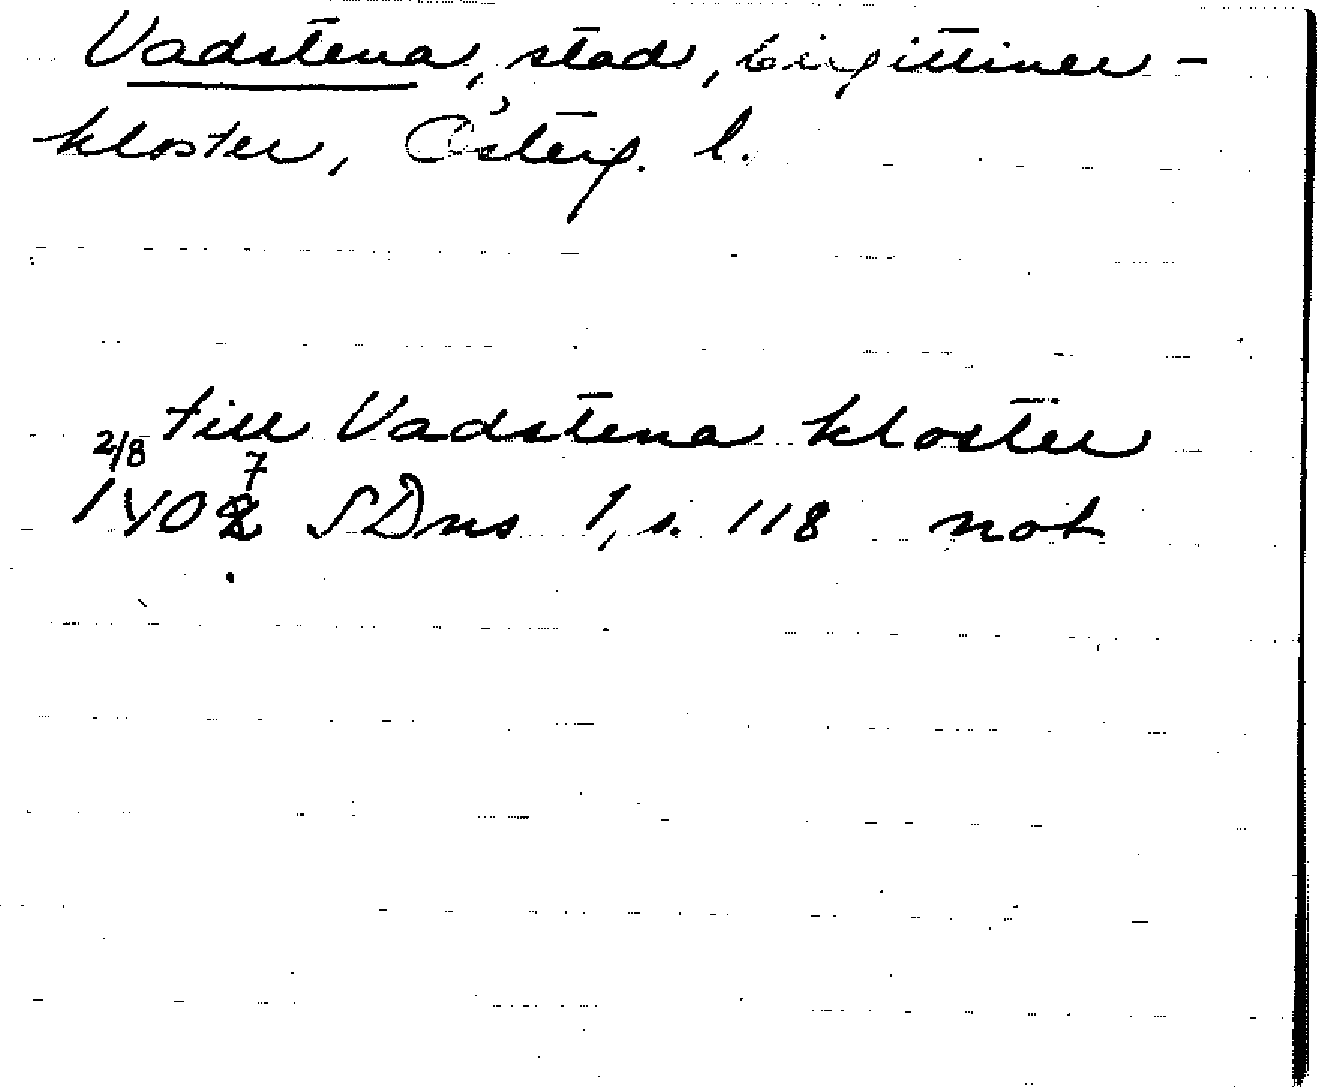 Vadstena, stad, birgittiner-
kloster, Österg. l.
till Vadstena kloster
2/8 1407 SDns 1, s. 118 not